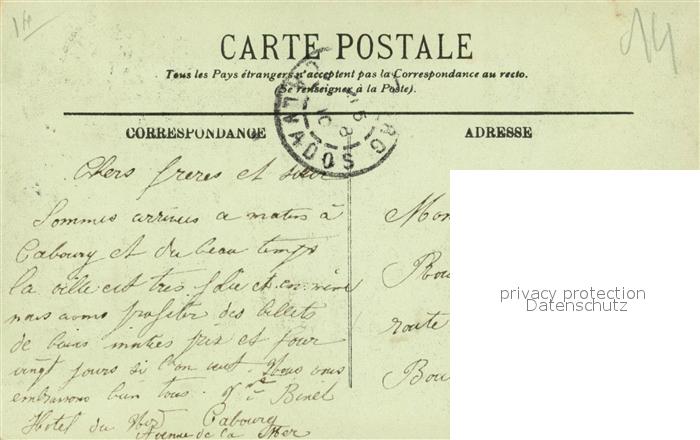 14
14
CARTE POSTALE
Tous les Pays étrangers n'acceptent pas la Correspondance au recto.
(Se renseigner à la Poste).
CORRESPONDANCE
ADRESSE
CALVADOS
Chers frères et sœur
Sommes arrivés a matin à
Cabourg et du beau temps
la ville est très jolie et en
nous avons profiter des billets
de bains moitiés prix et pour
vingt jours si l'on veut. Nous vous
embrassons bien tous. Binet
Hotel du Nord Cabourg
Avenue de la Mer
Mon
route
Bou
privacy protection
Datenschutz